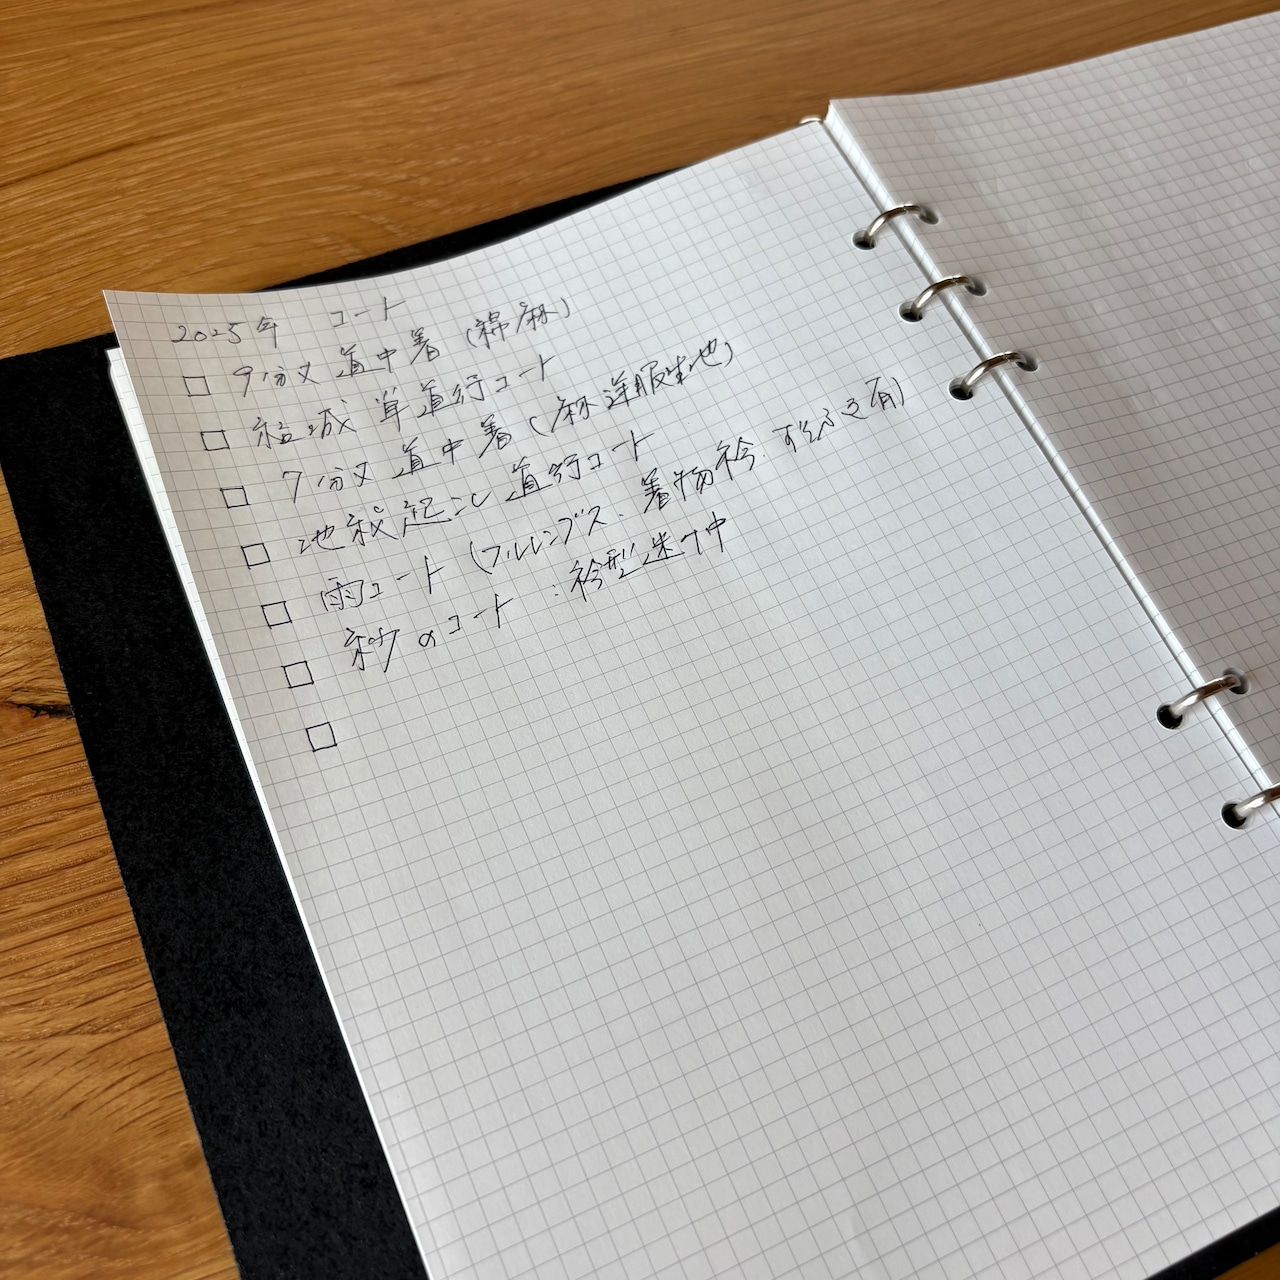 2025年 コート
□ 9分丈 道中着 (綿麻)
□ 結城 単道行コート
□ 7分丈 道中着 (麻洋服生地)
□ 池 起こし 道行コート
□ 雨コート (フルレングス、着物衿、すそふき有)
□ 紗のコート:衿型迷い中
□